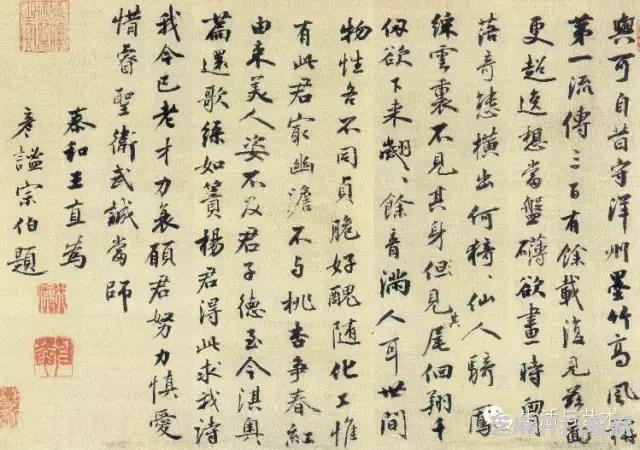 與可自昔守洋州墨竹高風稱
第一流傳三百有餘載復見茲觀
更超逸想當盤礴欲畫時胷
落奇態橫出何猗〻仙人騎鳳
綠雲裏不見其身但見其尾佪翔千
仞欲下来翽〻餘音滿人耳世間
物性各不同貞脆好醜随化工惟
有此君最幽澹不与桃杏争春紅
由来美人姿不及君子德至今淇奧
篇還歌綠如簀楊君得此求我詩
我今已老才力衰願君努力慎愛
惜睿聖衛武誠當師
泰和王直為
彥謐宗伯題